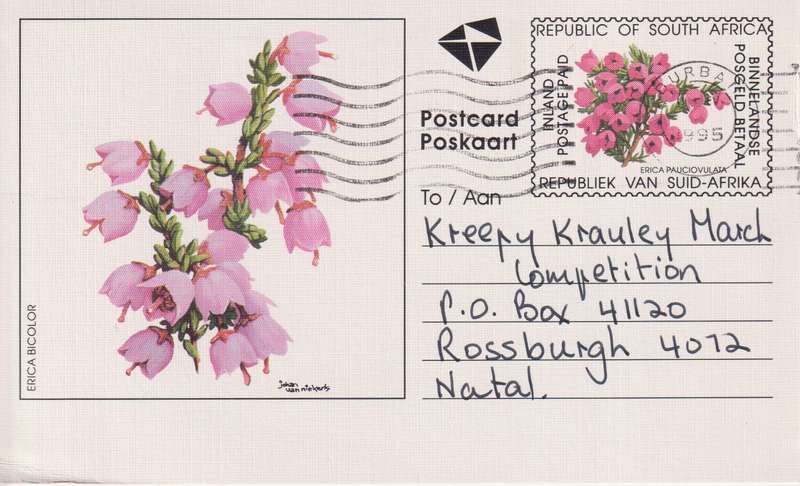 REPUBLIC OF SOUTH AFRICA
INLAND
POSTAGE PAID
BINNELANDSE
POSGELD BETAAL
ERICA PAUCIOVULATA
REPUBLIEK VAN SUID-AFRIKA
URBA
995
Postcard
Poskaart
To / Aan
Kreepy Krauley March
Competition
P.O. Box 41120
Rossburgh 4072
Natal.
ERICA BICOLOR
johan
van niekerk